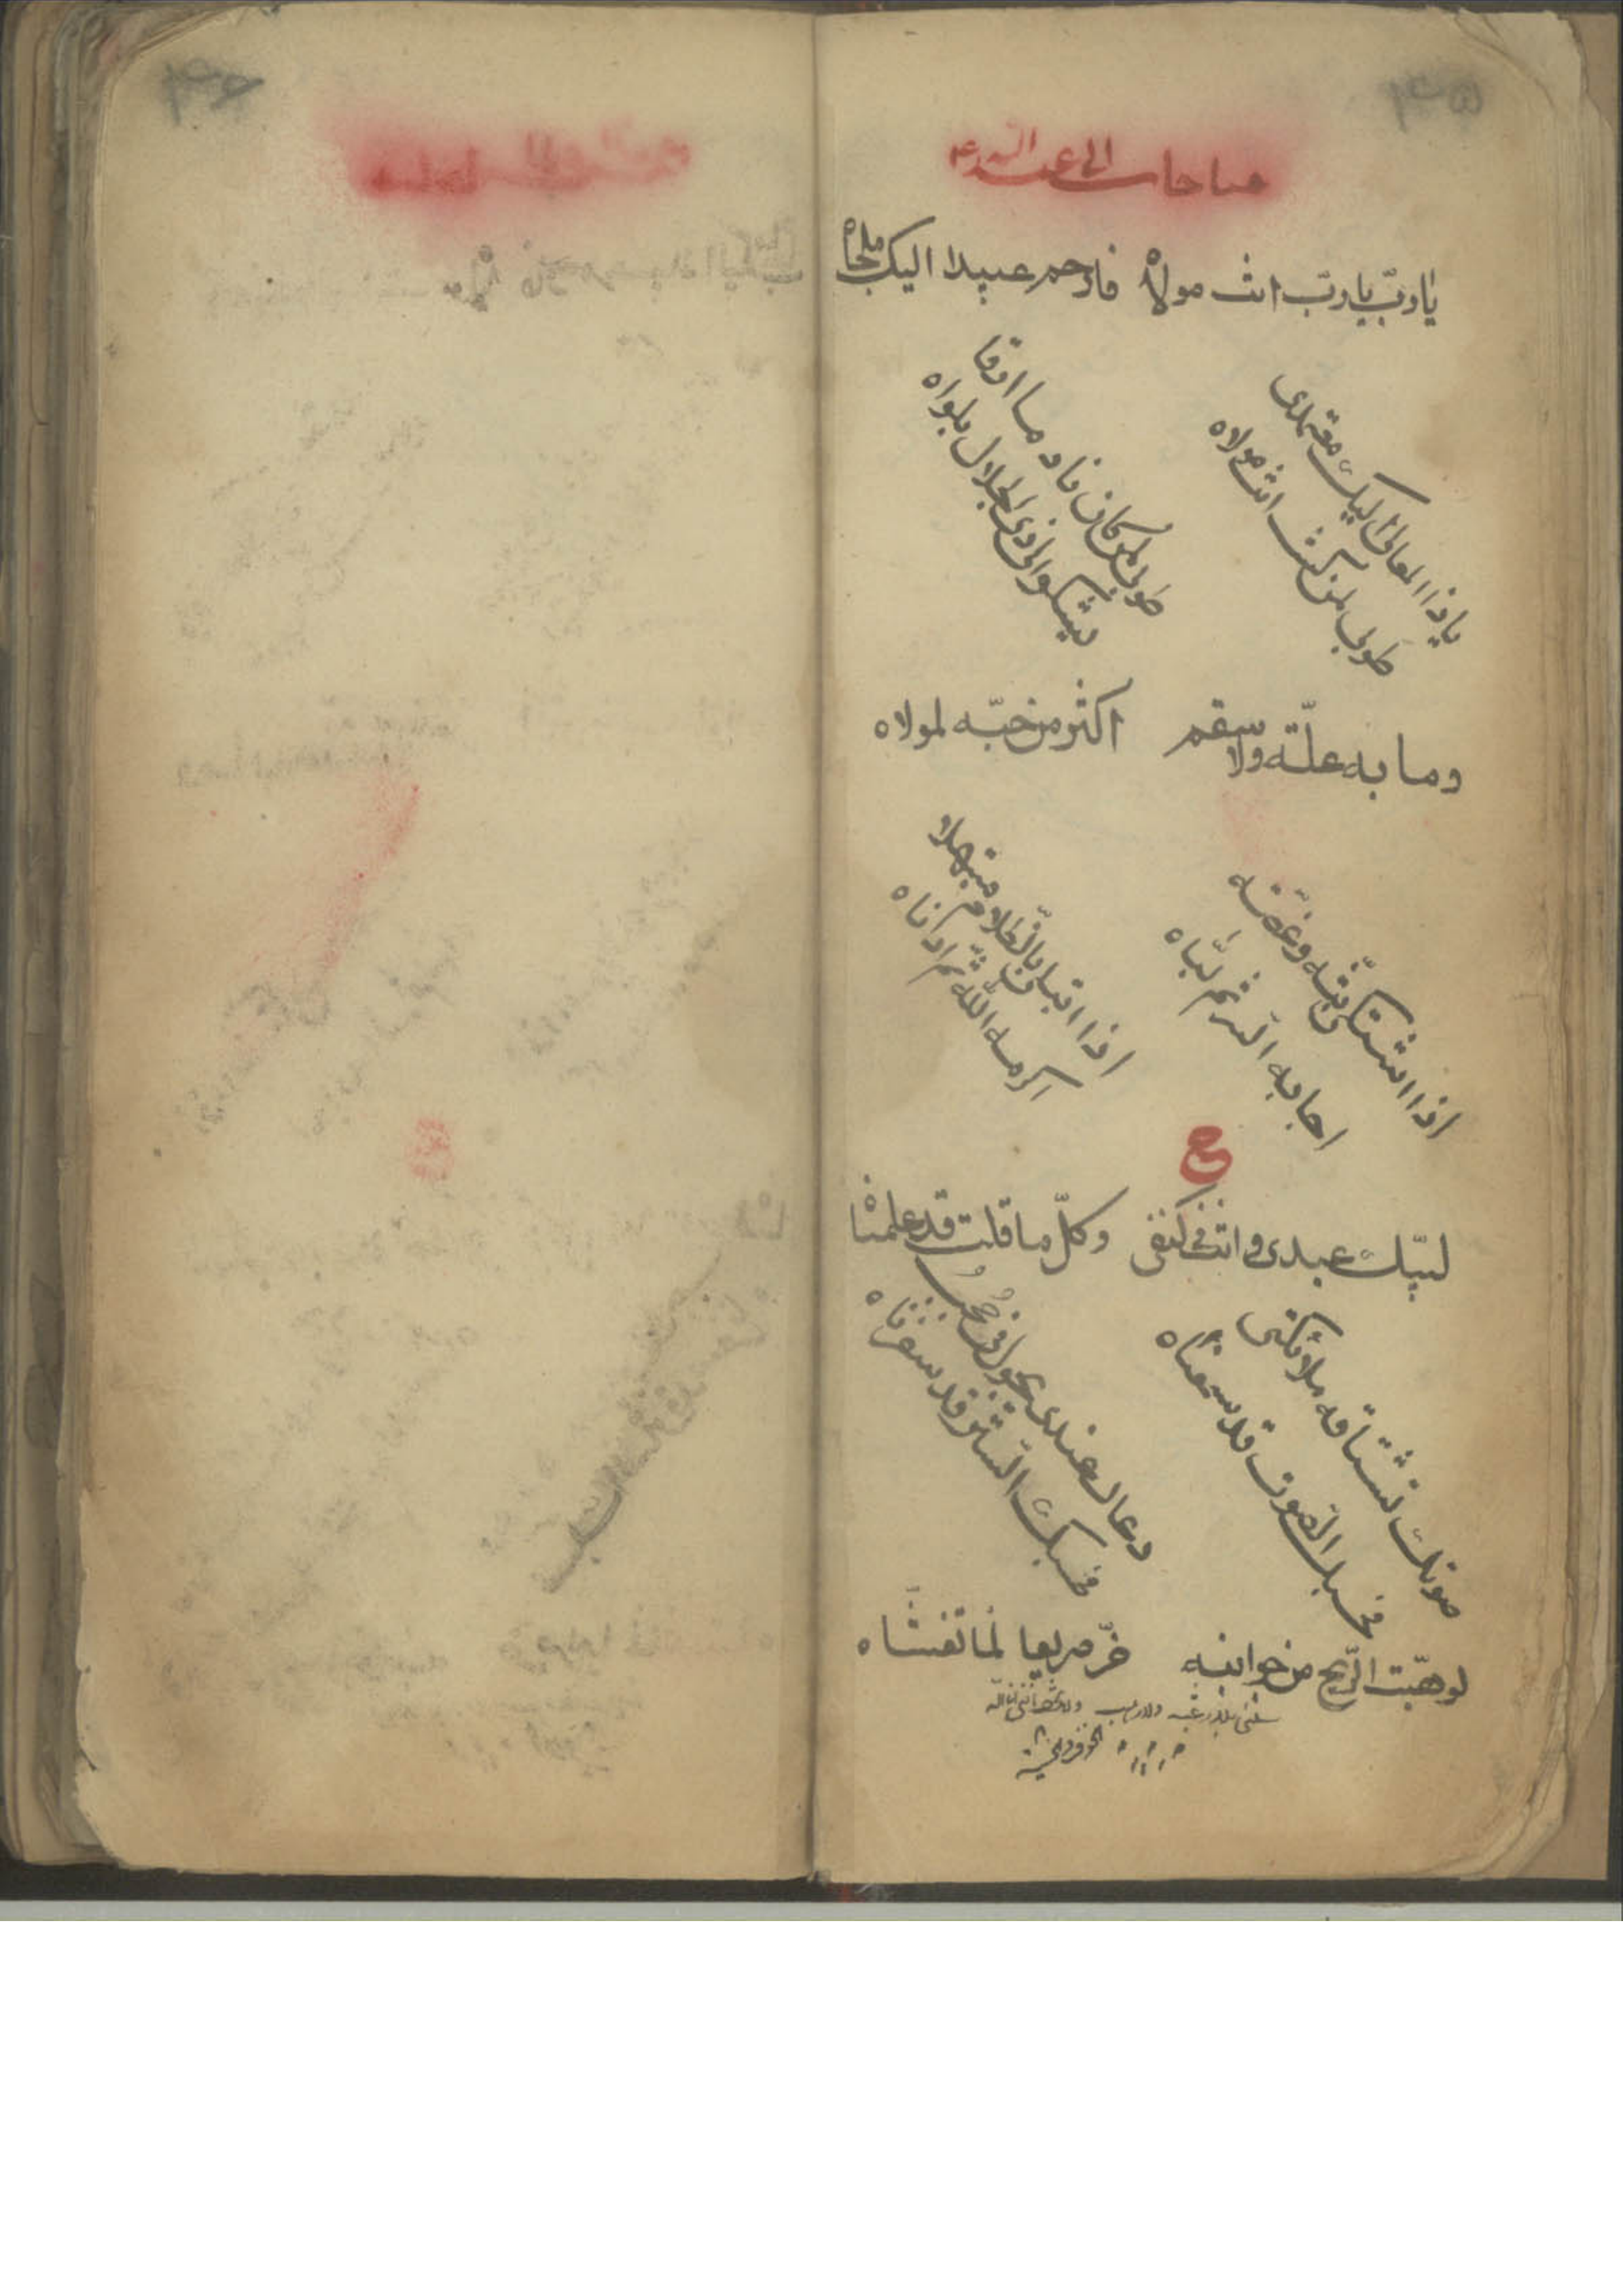 مناجات ابی عبد الله ع
یا ربّ یا ربّ انت مولاه فارحم عبیدا الیک ملجاه
یا ذا المعالی الیک معتمدی
طوبی لمن کنت انت مولاه
طوبی لمن کان نادما ارقا
یشکو الی ذی الجلال بلواه
وما به علّة ولا سقم اکثر من حبّه لمولاه
اذا اشتکی بثّه وغصّته
اجابه الله ثم لبّاه
اذا ابتلا بالظّلام مبتهلا
اکرمه اللّه ثمّ ادناه
ع
لبّیک عبدی وانت فی کنفی وکلّ ما قلت قد علمناه
صوتک تشتاقه ملائکتی
فحسبک الصّوت قد سمعناه
دعاک عندی یجول فی حجب
فحسبک السّتر قد سفرناه
لو هبّت الرّیح من جوانبه خرّ صریعا لما تغشّاه
سلنی بلا رغبة ولا رهب ولا تخف انّنی انا الله